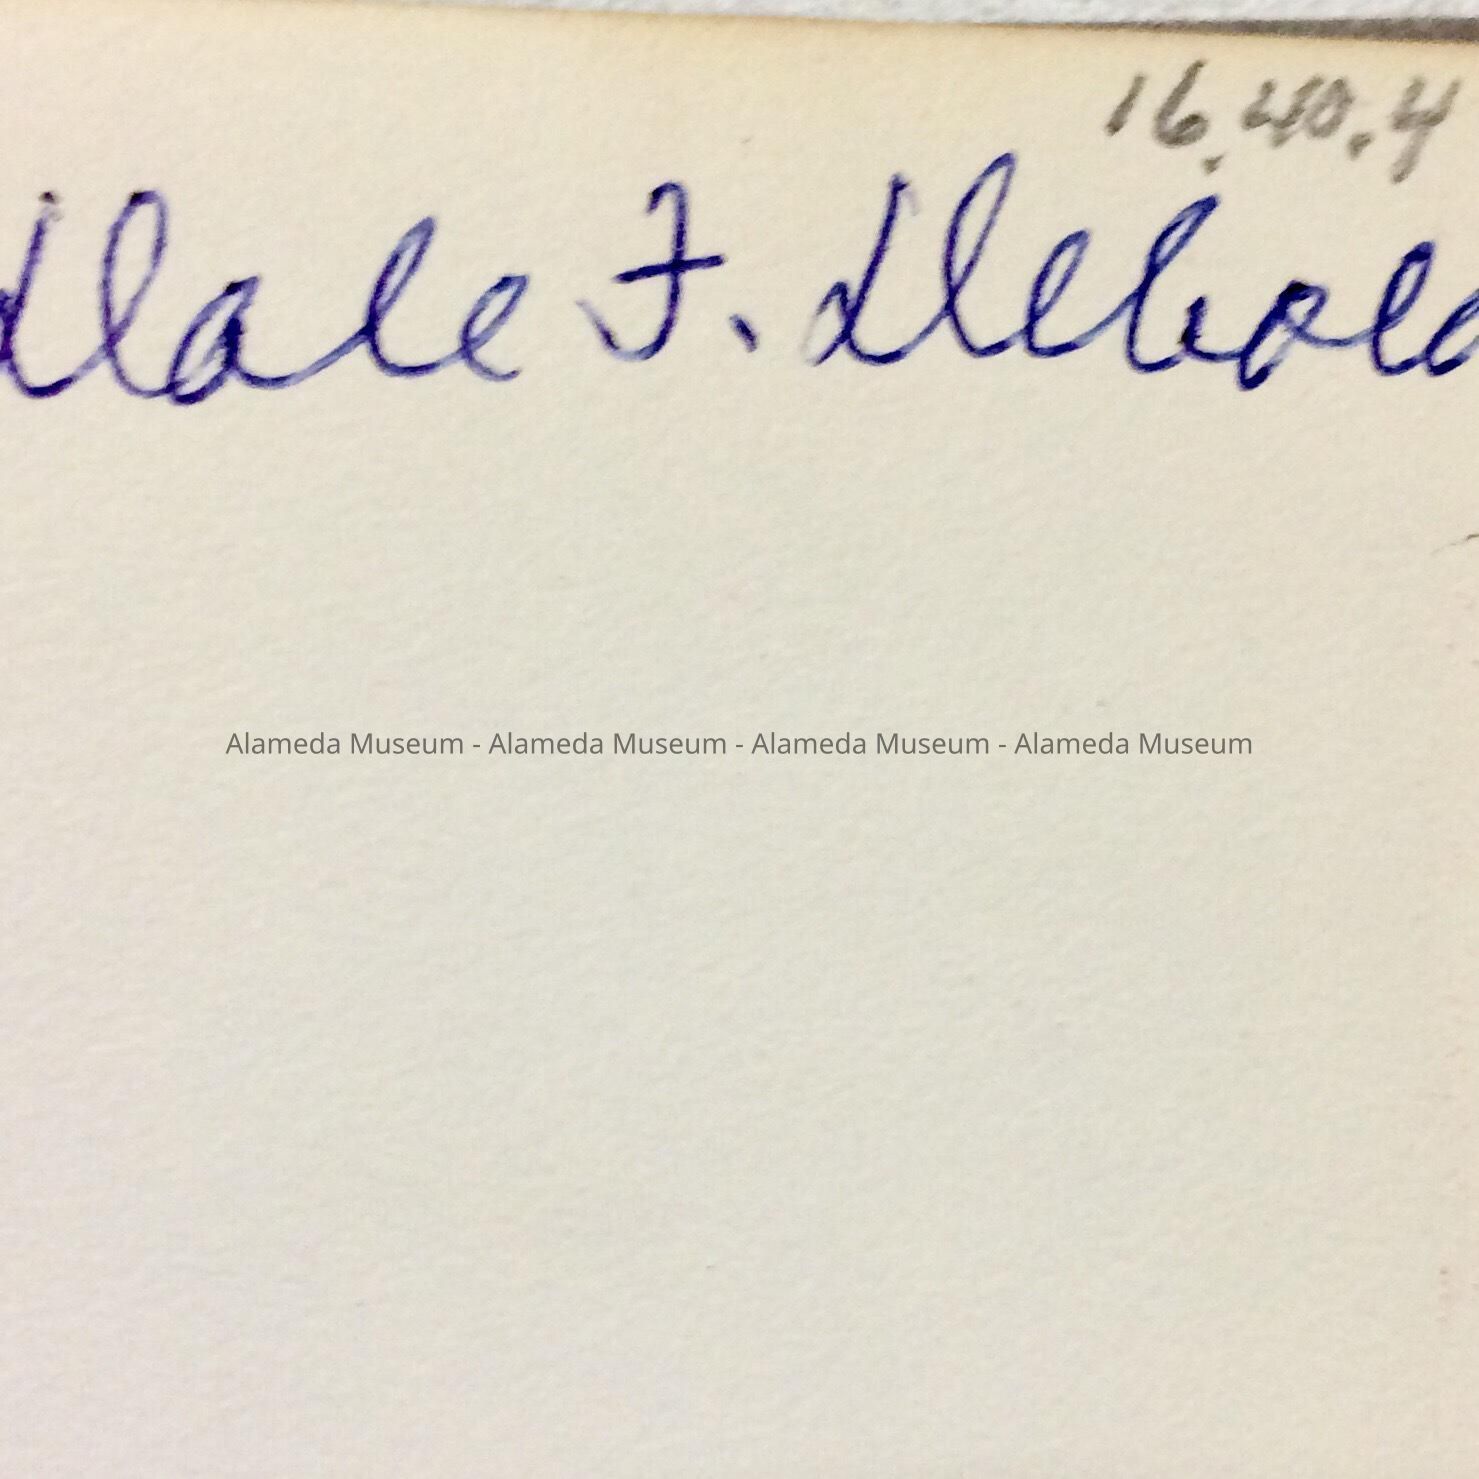 16.40.4
Dale F.
Alameda Museum - Alameda Museum - Alameda Museum - Alameda Museum